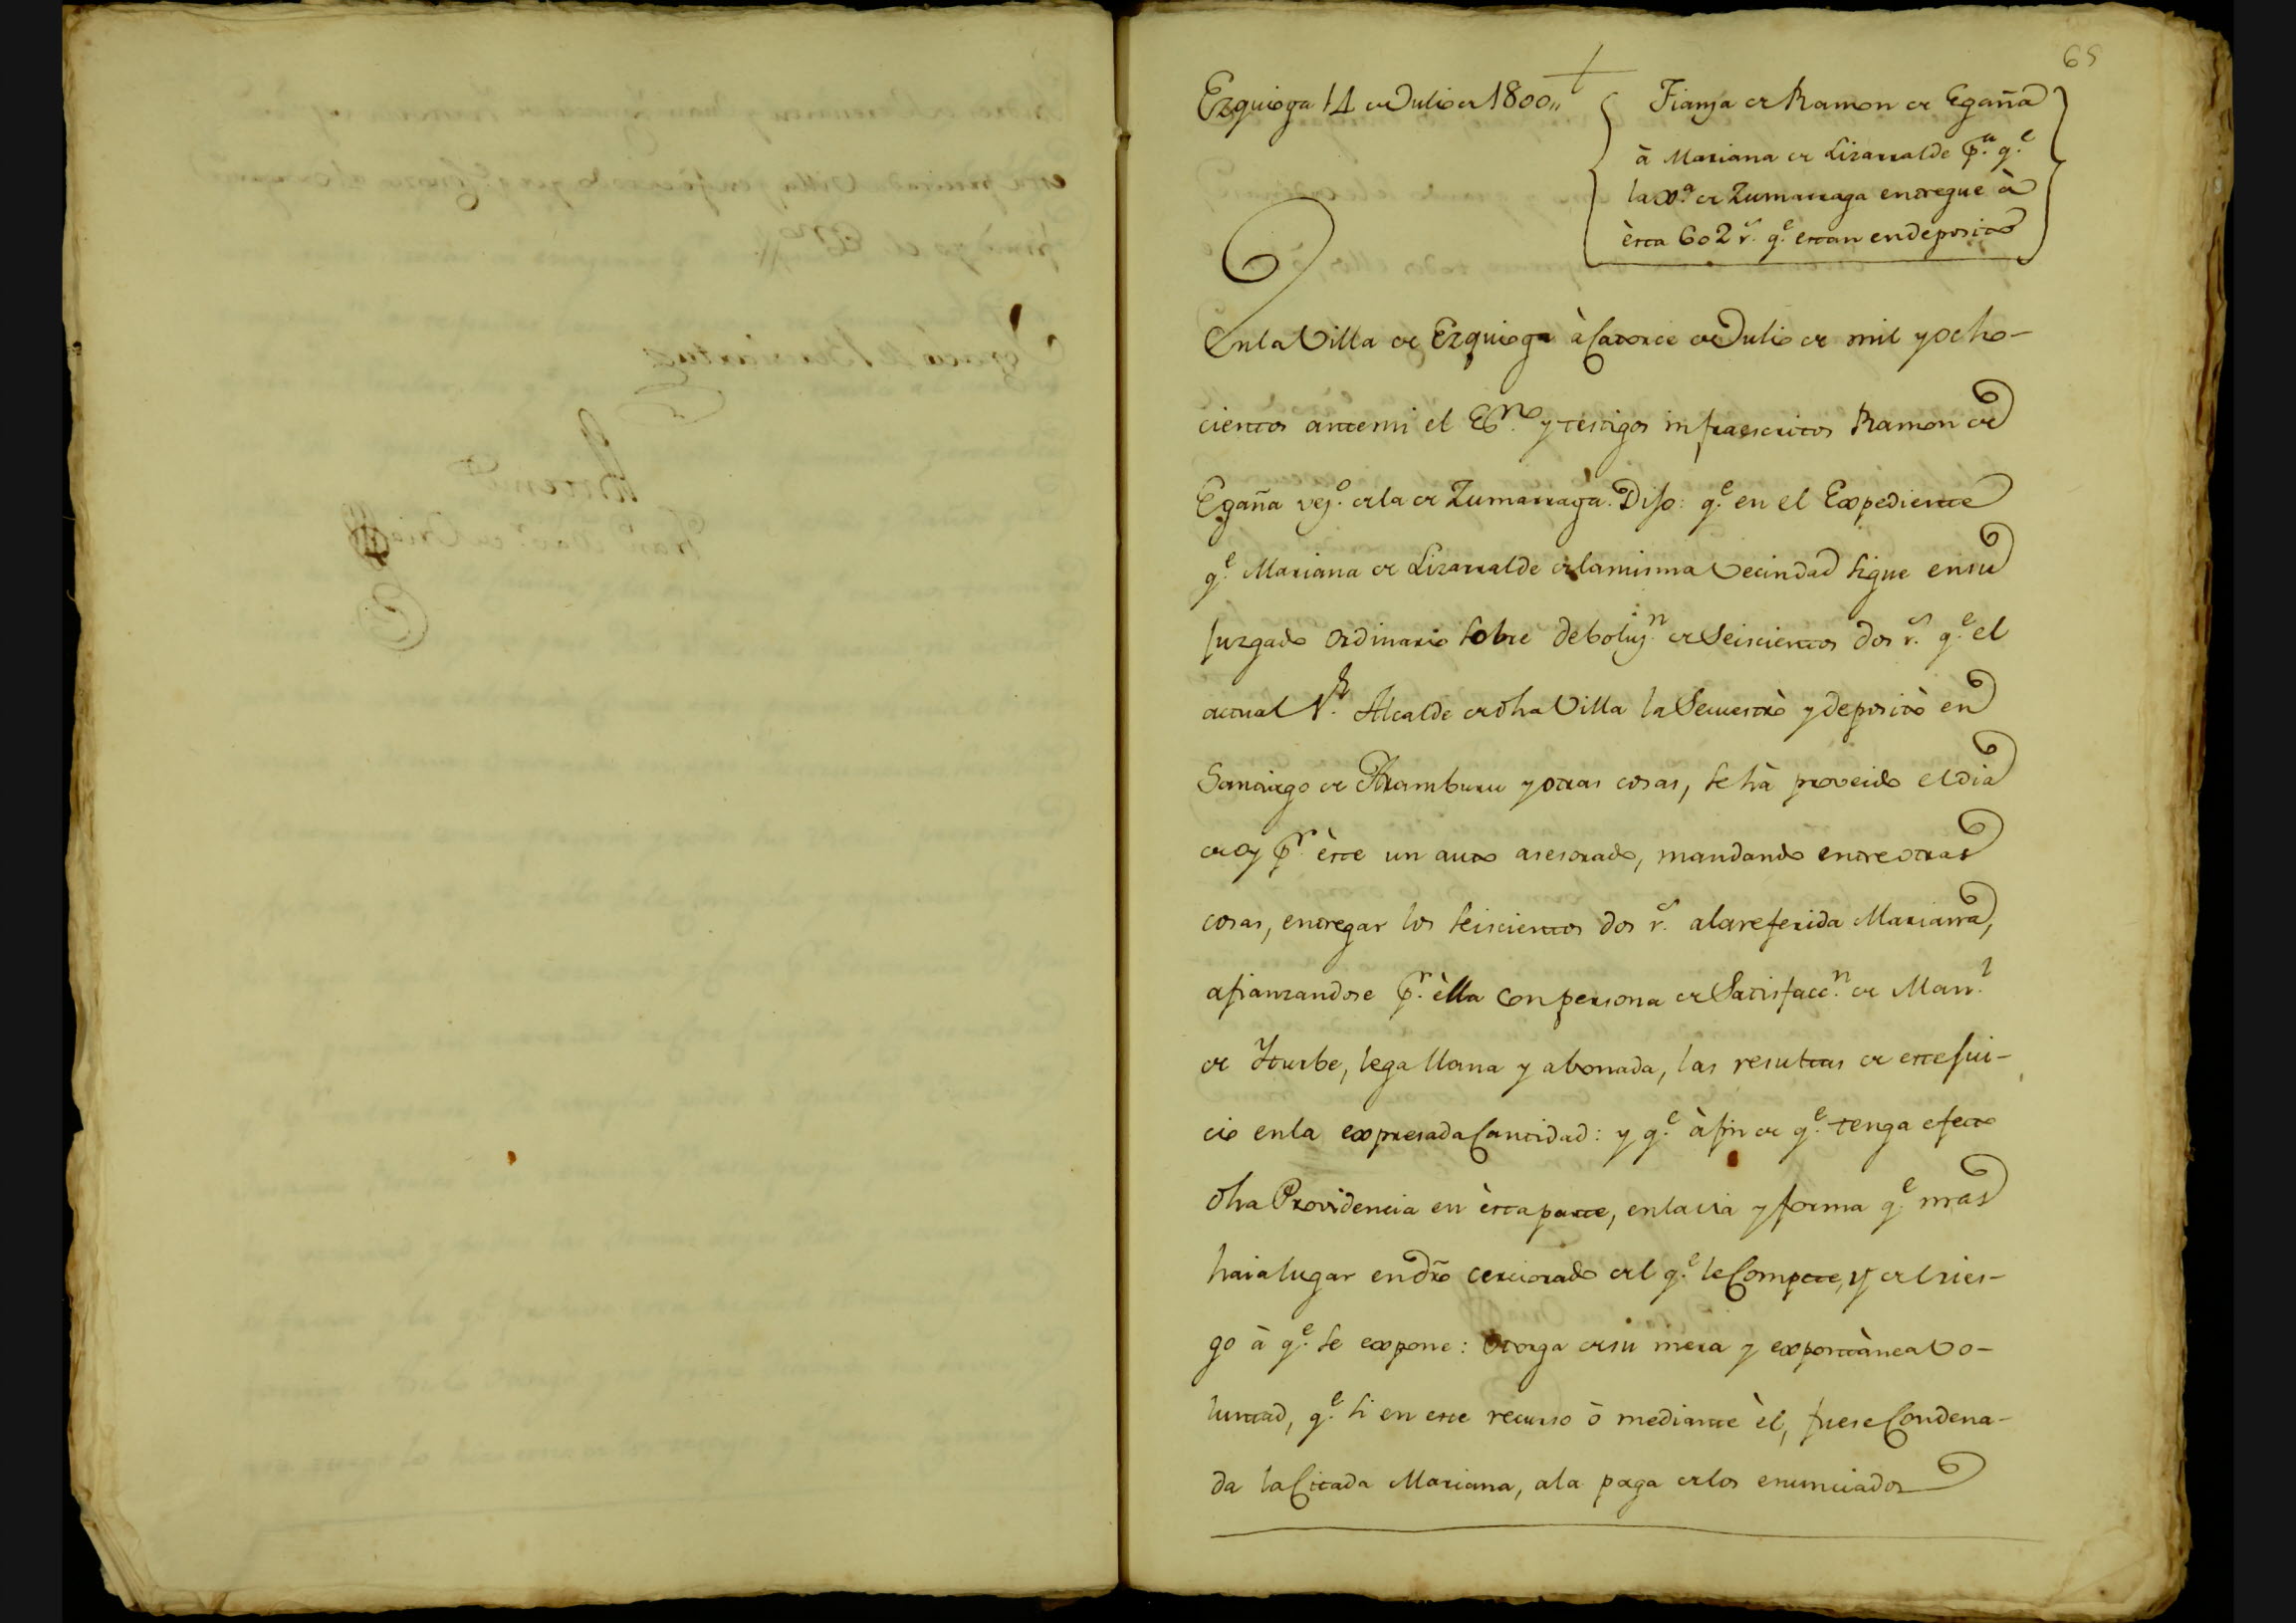 65
Ezquioga 14 de Julio de 1800,,
Fianza de Ramon de Egaña
à Mariana de Lizarralde p.ª q.e
la V.ª de Zumarraga entregue à
èsta 602 r.s q.e estan en deposito
En la Villa de Ezquioga à Catorce de Julio de mil y ocho-
cientos ante mi el Es.no y testigos infraescritos Ramon de
Egaña vez.o de la de Zumarraga. Dijo: q.e en el Expediente
q.e Mariana de Lizarralde de la misma Vecindad sigue en su
Juzgado ordinario sobre deboluz.n de Seiscientos dos r.s q.e el
actual S.r Alcalde de dha Villa la Secuestrò y depositò en
Santiago de Aramburu y otras cosas, se hà proveido el dia
de oy p.r èste un auto asesorado, mandando entre otras
cosas, entregar los seiscientos dos r.s a la referida Mariana,
afianzandose p.r èlla con persona de Satisfacc.n de Man.l
de Yturbe, lega llana y abonada, las resultas de este Jui-
cio en la expresada Cantidad: y q.e à fin de q.e tenga efecto
dha Providencia en èsta parte, en la via y forma q.e mas
haia lugar en dro cerciorado del q.e le Compete, y del ries-
go à q.e se expone: Otorga de su mera y expontànea vo-
luntad, q.e si en este recurso ò mediante èl, fuese Condena-
da la Citada Mariana, a la paga de los enunciados